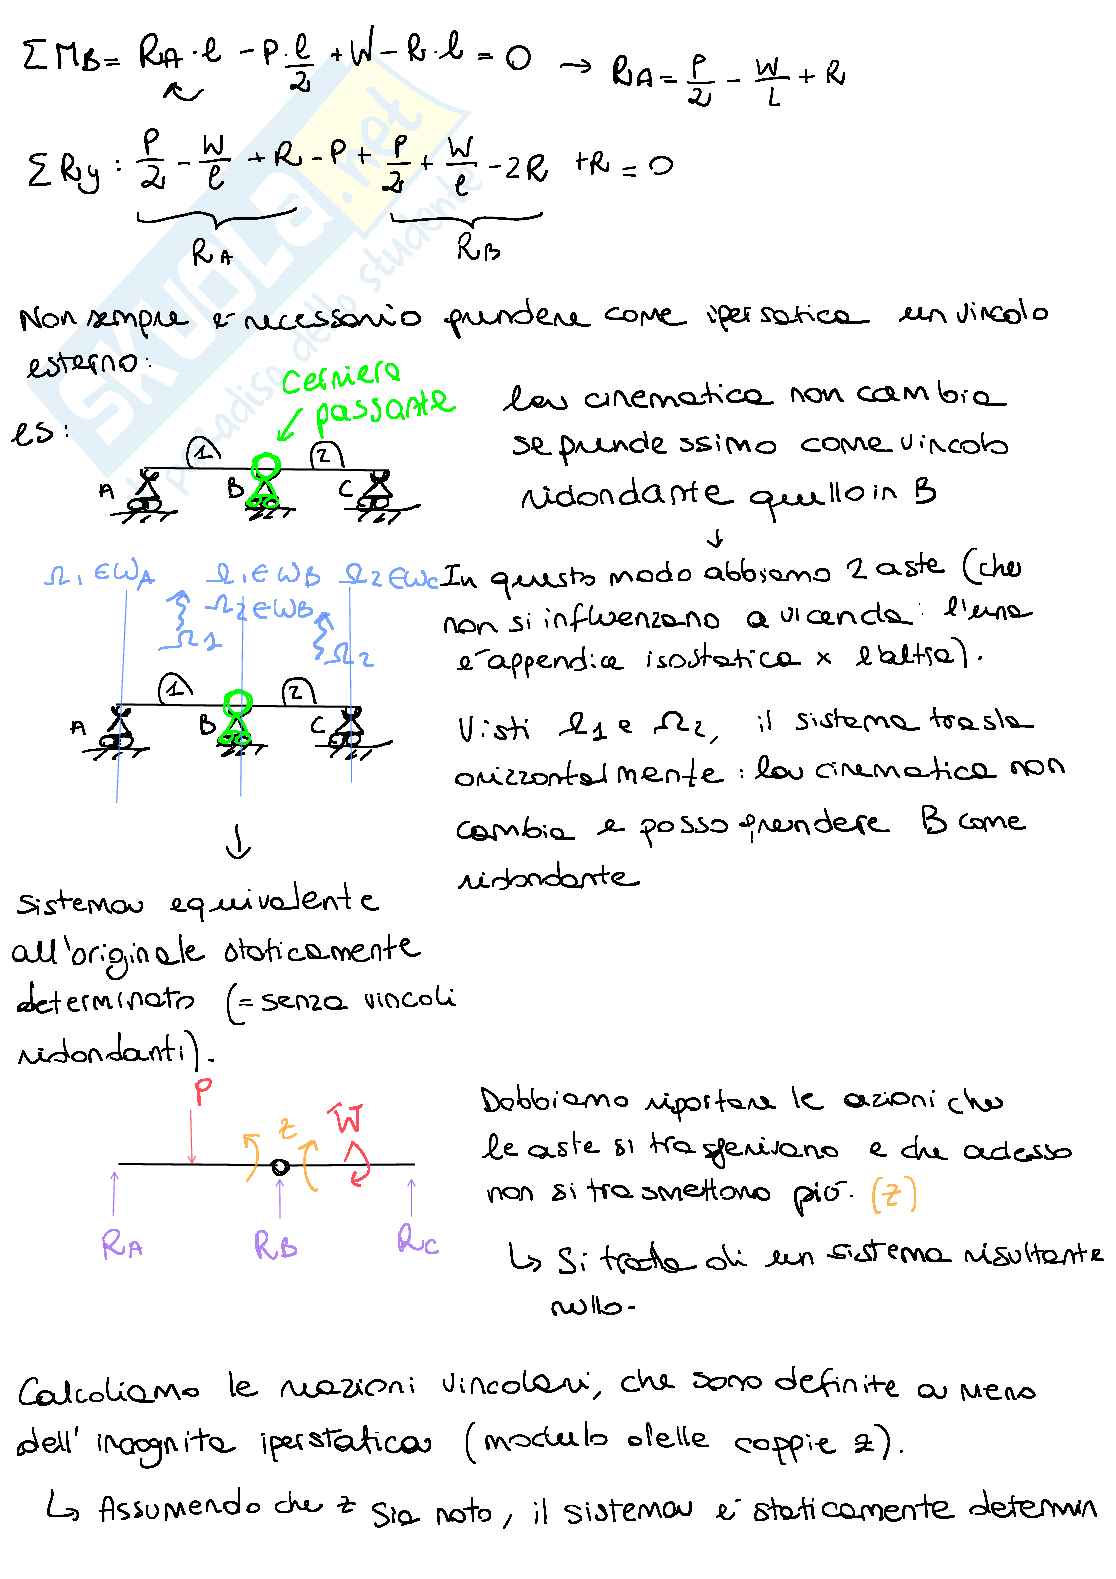 ΣMB= RA·l -P·l/2 +W-R·l = 0 → RA= P/2 - W/L + R
ΣRy: P/2 - W/l +R -P + P/2 + W/l -2R +R = 0
RA RB
Non sempre è necessario prendere come ipersatica un vincolo
esterno:
cerniera
passante
es:
1 2
A B C
la cinematica non cambia
se prendessimo come vincolo
ridondante quello in B
↓
Ω1 ∈ WA Ω1 ∈ WB Ω2 ∈ WC
Ω2 ∈ WB
Ω1 Ω2
1 2
A B C
In questo modo abbiamo 2 aste (che
non si influenzano a vicenda: l'una
è appendice isostatica x l'altra).
Visti Ω1 e Ω2, il sistema trasla
orizzontalmente: la cinematica non
cambia e posso prendere B come
ridondante
↓
Sistema equivalente
all'originale staticamente
determinato (=senza vincoli
ridondanti).
P z W
RA RB RC
Dobbiamo riportare le azioni che
le aste si trasferivano e che adesso
non si trasmettono più. (z)
↳ Si tratta di un sistema risultante
nullo.
Calcoliamo le reazioni vincolari, che sono definite a meno
dell'incognita iperstatica (modulo delle coppie z).
↳ Assumendo che z sia noto, il sistema è staticamente determin
SKUOLA.net
paradiso dello studente